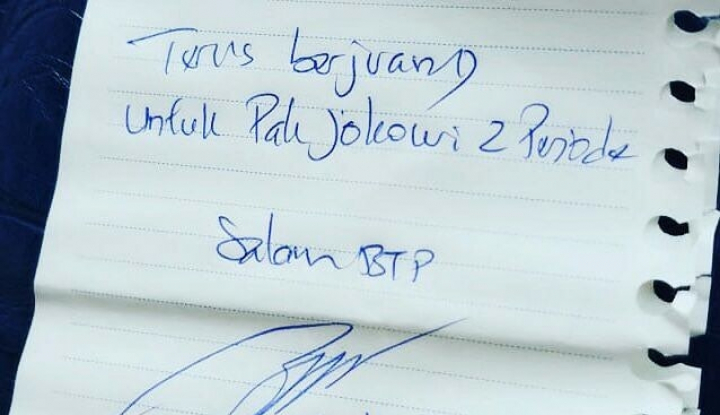 Terus berjuang
untuk Pak Jokowi 2 Periode
Salam BTP